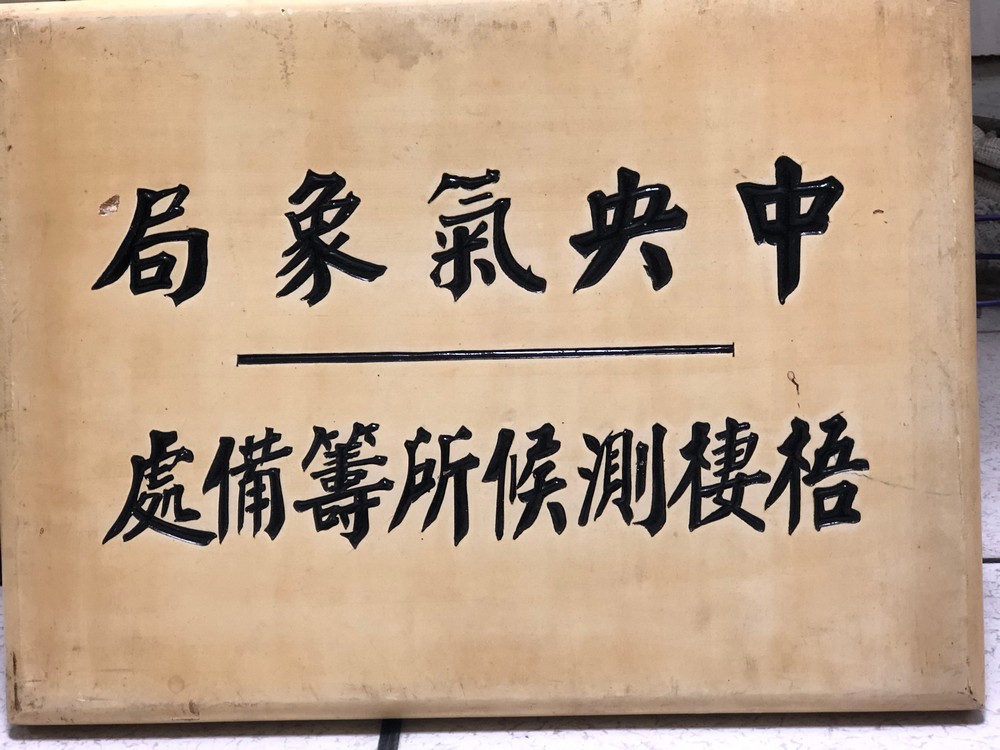 中央氣象局
梧棲測候所籌備處